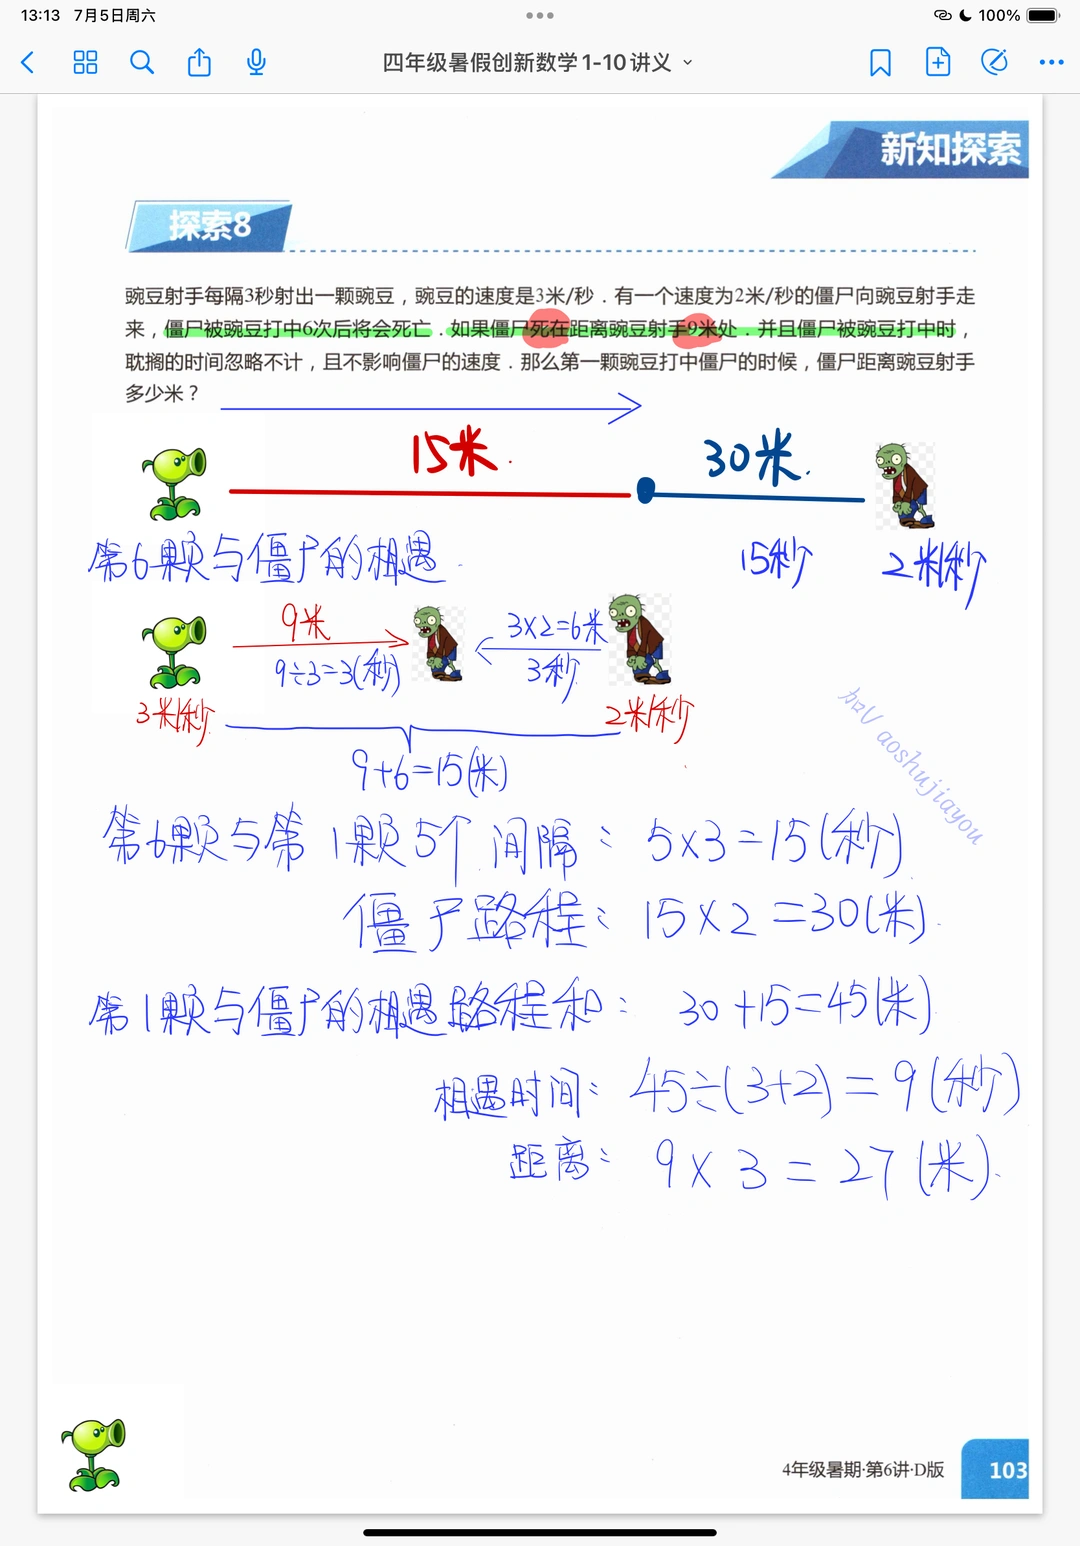 13:13 7月5日周六
100%
四年级暑假创新数学1-10讲义
新知探索
探索8
豌豆射手每隔3秒射出一颗豌豆，豌豆的速度是3米/秒．有一个速度为2米/秒的僵尸向豌豆射手走
来，僵尸被豌豆打中6次后将会死亡．如果僵尸死在距离豌豆射手9米处．并且僵尸被豌豆打中时，
耽搁的时间忽略不计，且不影响僵尸的速度．那么第一颗豌豆打中僵尸的时候，僵尸距离豌豆射手
多少米？
15米.
30米.
第6颗与僵尸的相遇.
15秒
2米/秒
9米
3×2=6米
9÷3=3(秒)
3秒
3米/秒
2米/秒
加V aoshujiayou
9+6=15(米)
第6颗与第1颗5个间隔：5×3=15(秒)
僵尸路程：15×2=30(米).
第1颗与僵尸的相遇路程和：30+15=45(米)
相遇时间：45÷(3+2)=9(秒)
距离：9×3=27(米).
4年级暑期·第6讲·D版
103